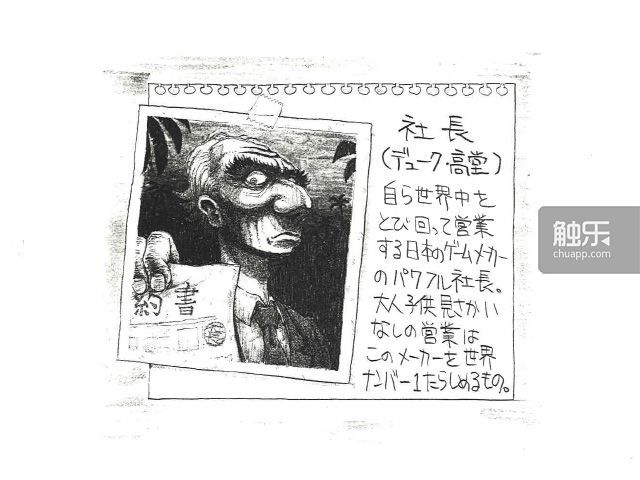 社長
(デューク・高堂)
自ら世界中を
とび回って営業
する日本のゲームメーカー
のパワフル社長。
大人子供見さかい
なしの営業は
このメーカーを世界
ナンバー1たらしめるもの。
約書
触乐
chuapp.com